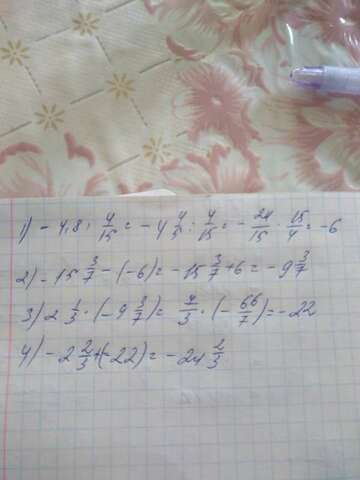 1) - 4,8 : 4/15 = - 4 4/5 : 4/15 = - 24/15 · 15/4 = - 6
2) - 15 3/7 - (-6) = - 15 3/7 + 6 = - 9 3/7
3) 2 1/3 · (- 9 3/7) = 7/3 · (- 66/7) = - 22
4) - 2 2/3 + (-22) = - 24 2/3